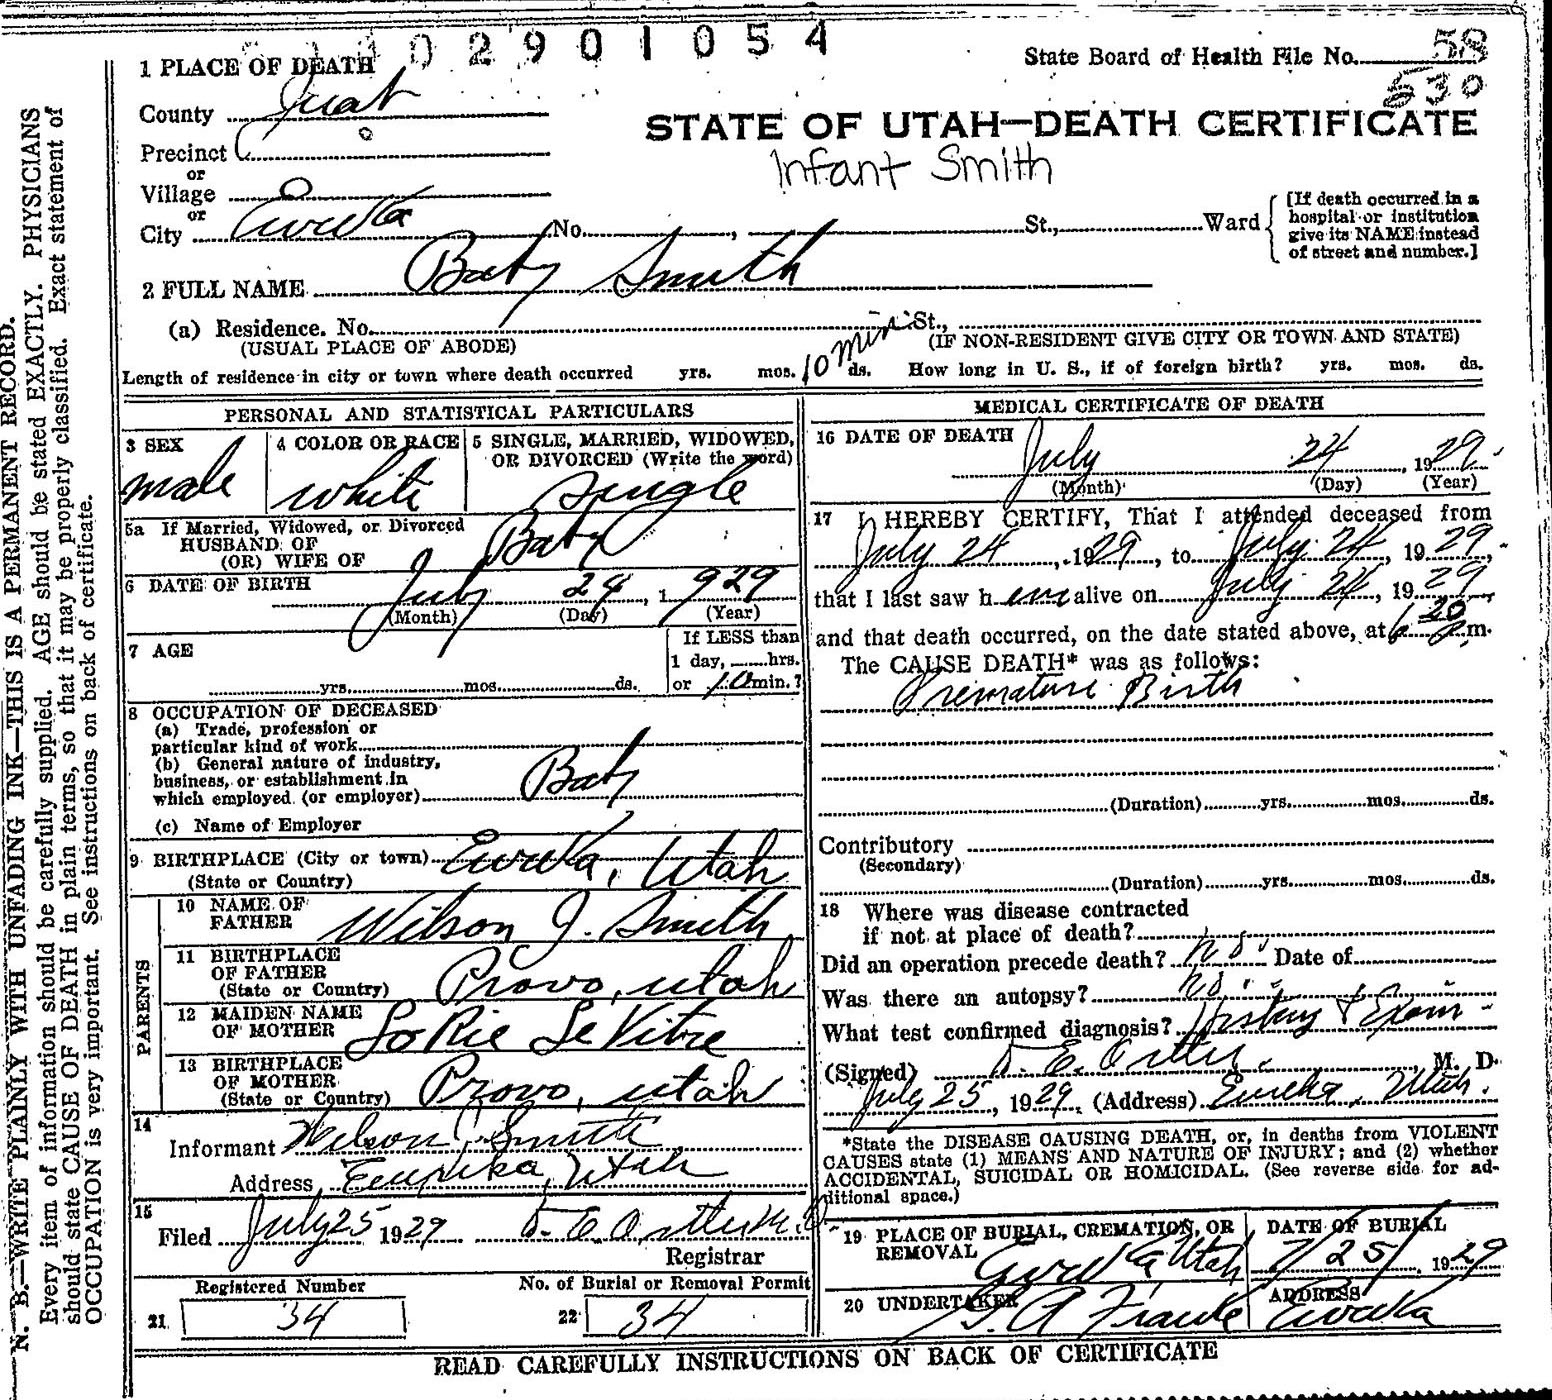 02901054
State Board of Health File No. 58
530
1 PLACE OF DEATH
County Juab
Precinct
or
Village
or
City Eureka No. , St., Ward
[If death occurred in a hospital or institution give its NAME instead of street and number.]
STATE OF UTAH—DEATH CERTIFICATE
Infant Smith
2 FULL NAME Baby Smith
(a) Residence. No. St.,
(USUAL PLACE OF ABODE) (IF NON-RESIDENT GIVE CITY OR TOWN AND STATE)
Length of residence in city or town where death occurred yrs. mos. 10 min ds. How long in U. S., if of foreign birth? yrs. mos. ds.
PERSONAL AND STATISTICAL PARTICULARS
3 SEX male
4 COLOR OR RACE white
5 SINGLE, MARRIED, WIDOWED, OR DIVORCED (Write the word) Single
5a If Married, Widowed, or Divorced
HUSBAND OF
(OR) WIFE OF Baby
6 DATE OF BIRTH July 24, 1929
(Month) (Day) (Year)
7 AGE
yrs. mos. ds.
If LESS than
1 day, hrs.
or 10 min.?
8 OCCUPATION OF DECEASED
(a) Trade, profession or
particular kind of work
(b) General nature of industry,
business, or establishment in
which employed (or employer) Baby
(c) Name of Employer
9 BIRTHPLACE (City or town) Eureka, Utah
(State or Country)
PARENTS
10 NAME OF
FATHER Wilson J. Smith
11 BIRTHPLACE
OF FATHER
(State or Country) Provo, Utah
12 MAIDEN NAME
OF MOTHER LoRie LeVitre
13 BIRTHPLACE
OF MOTHER
(State or Country) Provo, Utah
14
Informant Wilson J. Smith
Address Eureka, Utah
15
Filed July 25 1929
Registrar
Registered Number
21 34
No. of Burial or Removal Permit
22 34
MEDICAL CERTIFICATE OF DEATH
16 DATE OF DEATH July 24, 1929
(Month) (Day) (Year)
17 I HEREBY CERTIFY, That I attended deceased from
July 24, 1929, to July 24, 1929,
that I last saw h alive on July 24, 1929,
and that death occurred, on the date stated above, at 6 20 m.
The CAUSE DEATH* was as follows:
Premature Birth
(Duration) yrs. mos. ds.
Contributory
(Secondary)
(Duration) yrs. mos. ds.
18 Where was disease contracted
if not at place of death?
Did an operation precede death? No. Date of
Was there an autopsy? No.
What test confirmed diagnosis? History & Exam
(Signed) M. D.
July 25, 1929, (Address) Eureka, Utah.
*State the DISEASE CAUSING DEATH, or, in deaths from VIOLENT
CAUSES state (1) MEANS AND NATURE OF INJURY; and (2) whether
ACCIDENTAL, SUICIDAL OR HOMICIDAL. (See reverse side for ad-
ditional space.)
19 PLACE OF BURIAL, CREMATION, OR
REMOVAL Eureka Utah
DATE OF BURIAL
7/25/, 1929
20 UNDERTAKER
ADDRESS
Eureka
READ CAREFULLY INSTRUCTIONS ON BACK OF CERTIFICATE
N. B.—WRITE PLAINLY WITH UNFADING INK—THIS IS A PERMANENT RECORD.
Every item of information should be carefully supplied. AGE should be stated EXACTLY. PHYSICIANS
should state CAUSE OF DEATH in plain terms, so that it may be properly classified. Exact statement of
OCCUPATION is very important. See instructions on back of certificate.